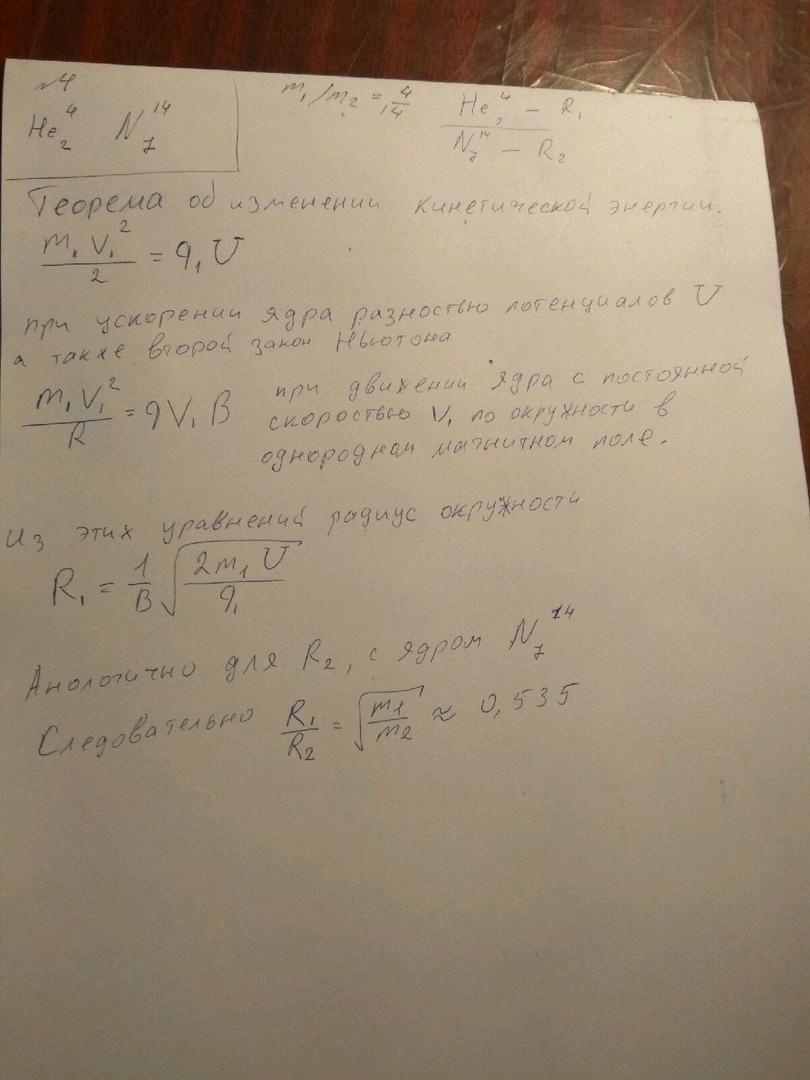 №4
He₂⁴ N₇¹⁴
m₁/m₂ = 4/14
He₂⁴ – R₁
N₇¹⁴ – R₂
Теорема об изменении кинетической энергии.
m₁V₁²/2 = q₁U
при ускорении ядра разностью потенциалов U
а также второй закон Ньютона
m₁V₁²/R = qV₁B
при движении ядра с постоянной
скоростью V₁ по окружности в
однородном магнитном поле.
Из этих уравнений радиус окружности
R₁ = 1/B √(2m₁U/q₁)
Анологично для R₂, с ядром N₇¹⁴
Следовательно R₁/R₂ = √(m₁/m₂) ≈ 0,535